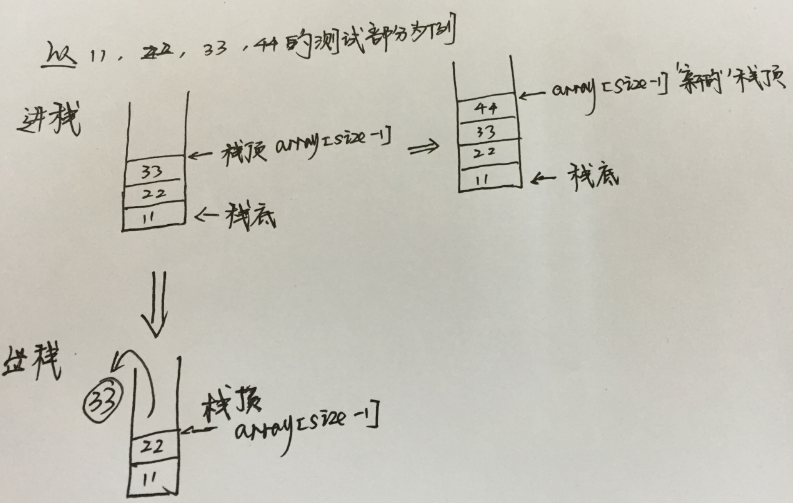 以 11, 22, 33, 44的测试部分为例
进栈
33
22
11
← 栈顶 array[size-1]
← 栈底
⇒
44
33
22
11
← array[size-1] '新的' 栈顶
← 栈底
出栈
33
22
11
栈顶
array[size-1]